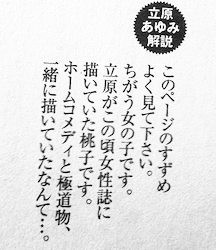 立原
あゆみ
解説
このページのすずめ
よく見て下さい。
ちがう女の子です。
立原がこの頃女性誌に
描いていた桃子です。
ホームコメディと極道物、
一緒に描いていたなんて…。